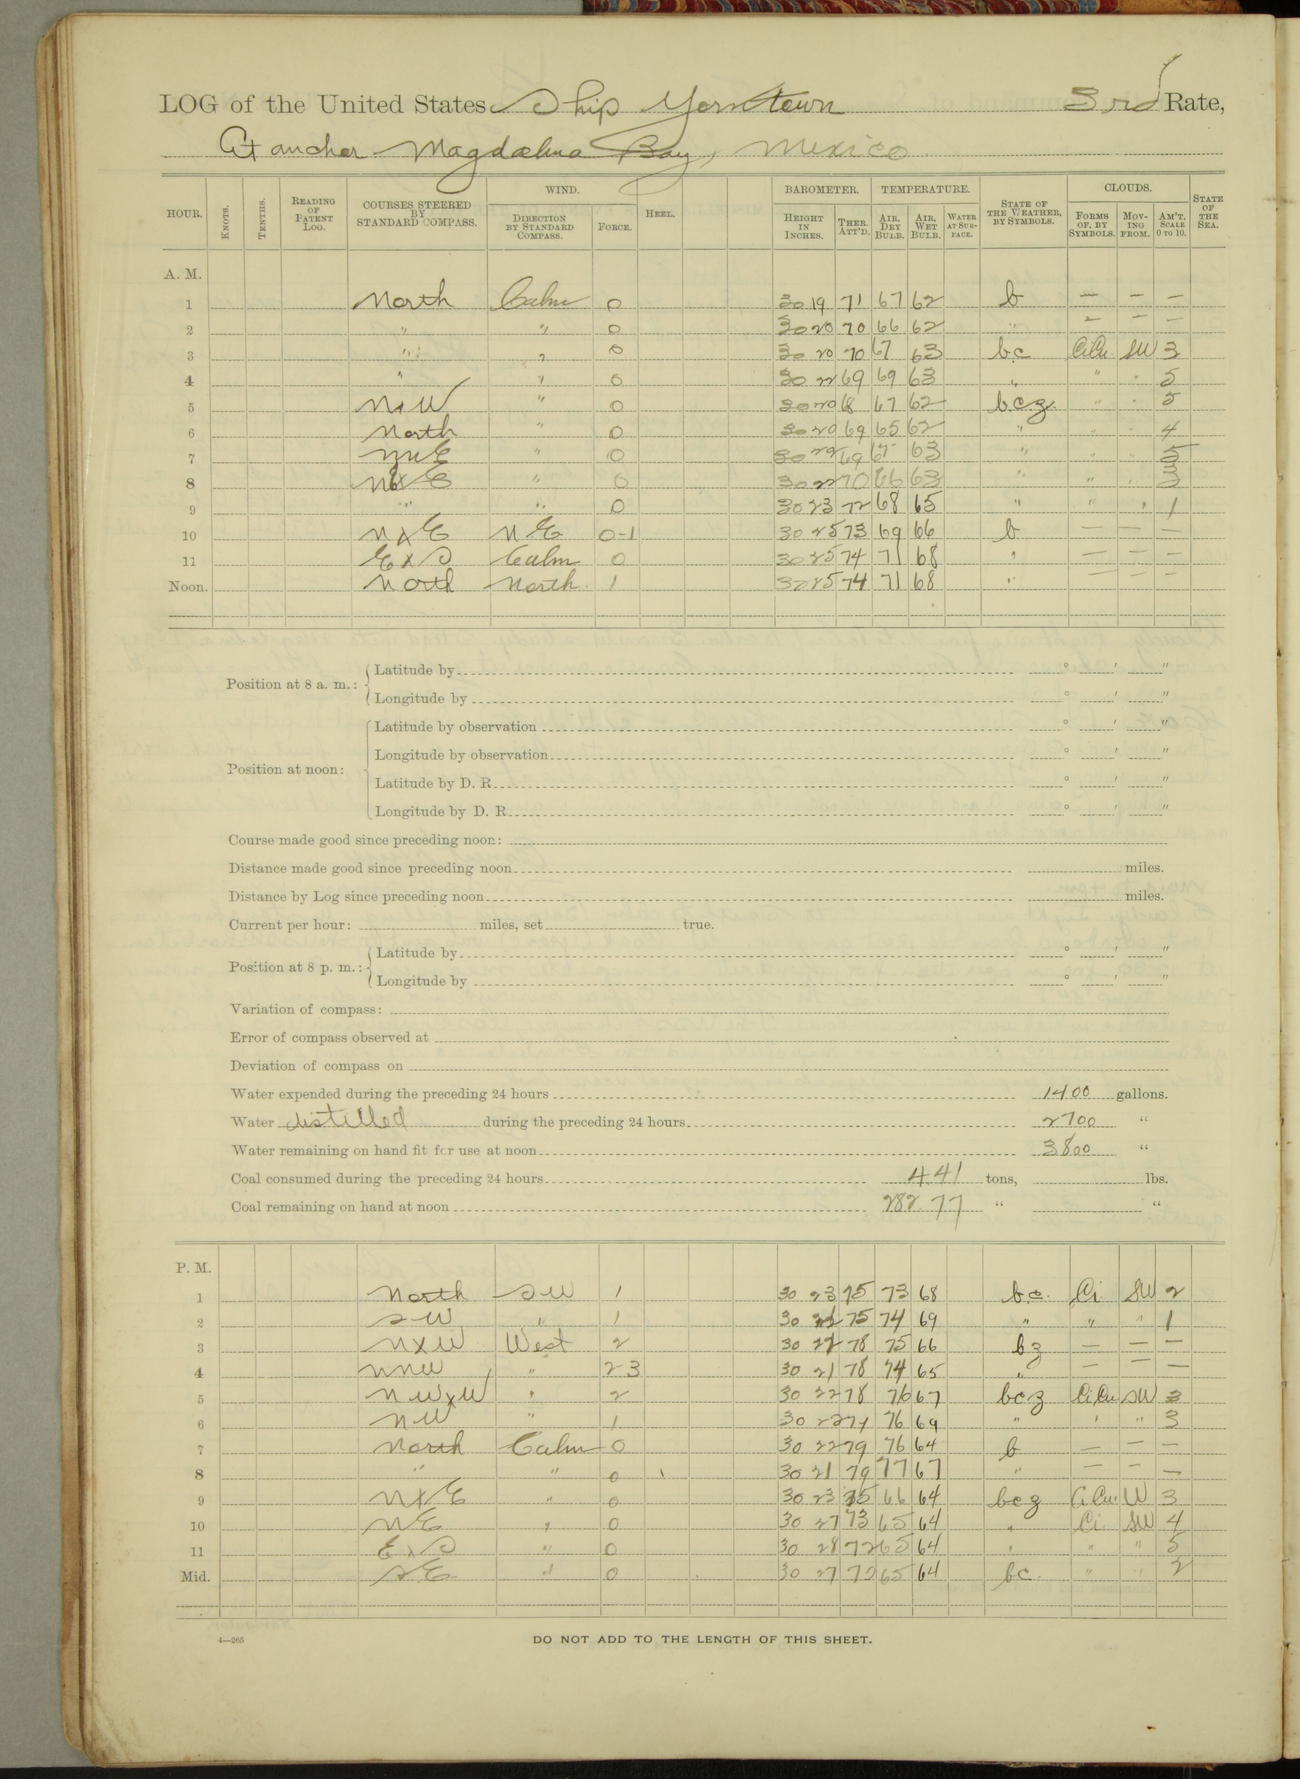 LOG of the United States Ship Yorktown 3rd Rate,
At anchor Magdalena Bay, Mexico
HOUR. KNOTS. TENTHS. READING OF PATENT LOG. COURSES STEERED BY STANDARD COMPASS. WIND. DIRECTION BY STANDARD COMPASS. FORCE. HEEL. BAROMETER. HEIGHT IN INCHES. THER. ATT'D. TEMPERATURE. AIR, DRY BULB. AIR, WET BULB. WATER AT SURFACE. STATE OF THE WEATHER, BY SYMBOLS. CLOUDS. FORMS OF, BY SYMBOLS. MOVING FROM. AM'T, SCALE 0 TO 10. STATE OF THE SEA.
A. M.
1 North Calm 0 30 19 71 67 62 b — — —
2 " " 0 30 20 70 66 62 " — — —
3 " " 0 30 20 70 67 63 bc CiCu SW 3
4 " " 0 30 22 69 69 63 " " " 5
5 NxW " 0 30 20 68 67 62 bcz " " 5
6 North " 0 30 20 69 65 62 " " " 4
7 NNE " 0 30 22 69 67 63 " " " 5
8 NxE " 0 30 22 70 66 63 " " " 3
9 " " 0 30 23 72 68 65 " " " 1
10 NxE NE 0-1 30 25 73 69 66 b — — —
11 ExS Calm 0 30 25 74 71 68 " — — —
Noon. North North 1 30 25 74 71 68 " — — —
Position at 8 a. m.: Latitude by ° ' "
Longitude by ° ' "
Position at noon: Latitude by observation ° ' "
Longitude by observation ° ' "
Latitude by D. R. ° ' "
Longitude by D. R. ° ' "
Course made good since preceding noon:
Distance made good since preceding noon miles.
Distance by Log since preceding noon miles.
Current per hour: miles, set true.
Position at 8 p. m.: Latitude by ° ' "
Longitude by ° ' "
Variation of compass:
Error of compass observed at
Deviation of compass on
Water expended during the preceding 24 hours 1400 gallons.
Water distilled during the preceding 24 hours 2700 "
Water remaining on hand fit for use at noon 3800 "
Coal consumed during the preceding 24 hours 4.41 tons, lbs.
Coal remaining on hand at noon 282.77 " "
P. M.
1 North SW 1 30 23 75 73 68 bc. Ci SW 2
2 SW " 1 30 22 75 74 69 " " " 1
3 NxW West 2 30 78 75 66 bz — — —
4 NNW " 2 3 30 21 78 74 65 " — — —
5 NWxW " 2 30 22 78 76 67 bcz CiCu SW 3
6 NW " 1 30 22 76 69 " " " 3
7 North Calm 0 30 22 79 76 64 b — — —
8 " " 0 30 21 79 77 67 " — — —
9 NxE " 0 30 23 75 66 64 bcz CiCu. W 3
10 NE " 0 30 27 73 65 64 " Ci. SW 4
11 ExS " 0 30 28 72 65 64 " " " 5
Mid. SE " 0 30 27 72 65 64 bc. " " 2
4—265
DO NOT ADD TO THE LENGTH OF THIS SHEET.